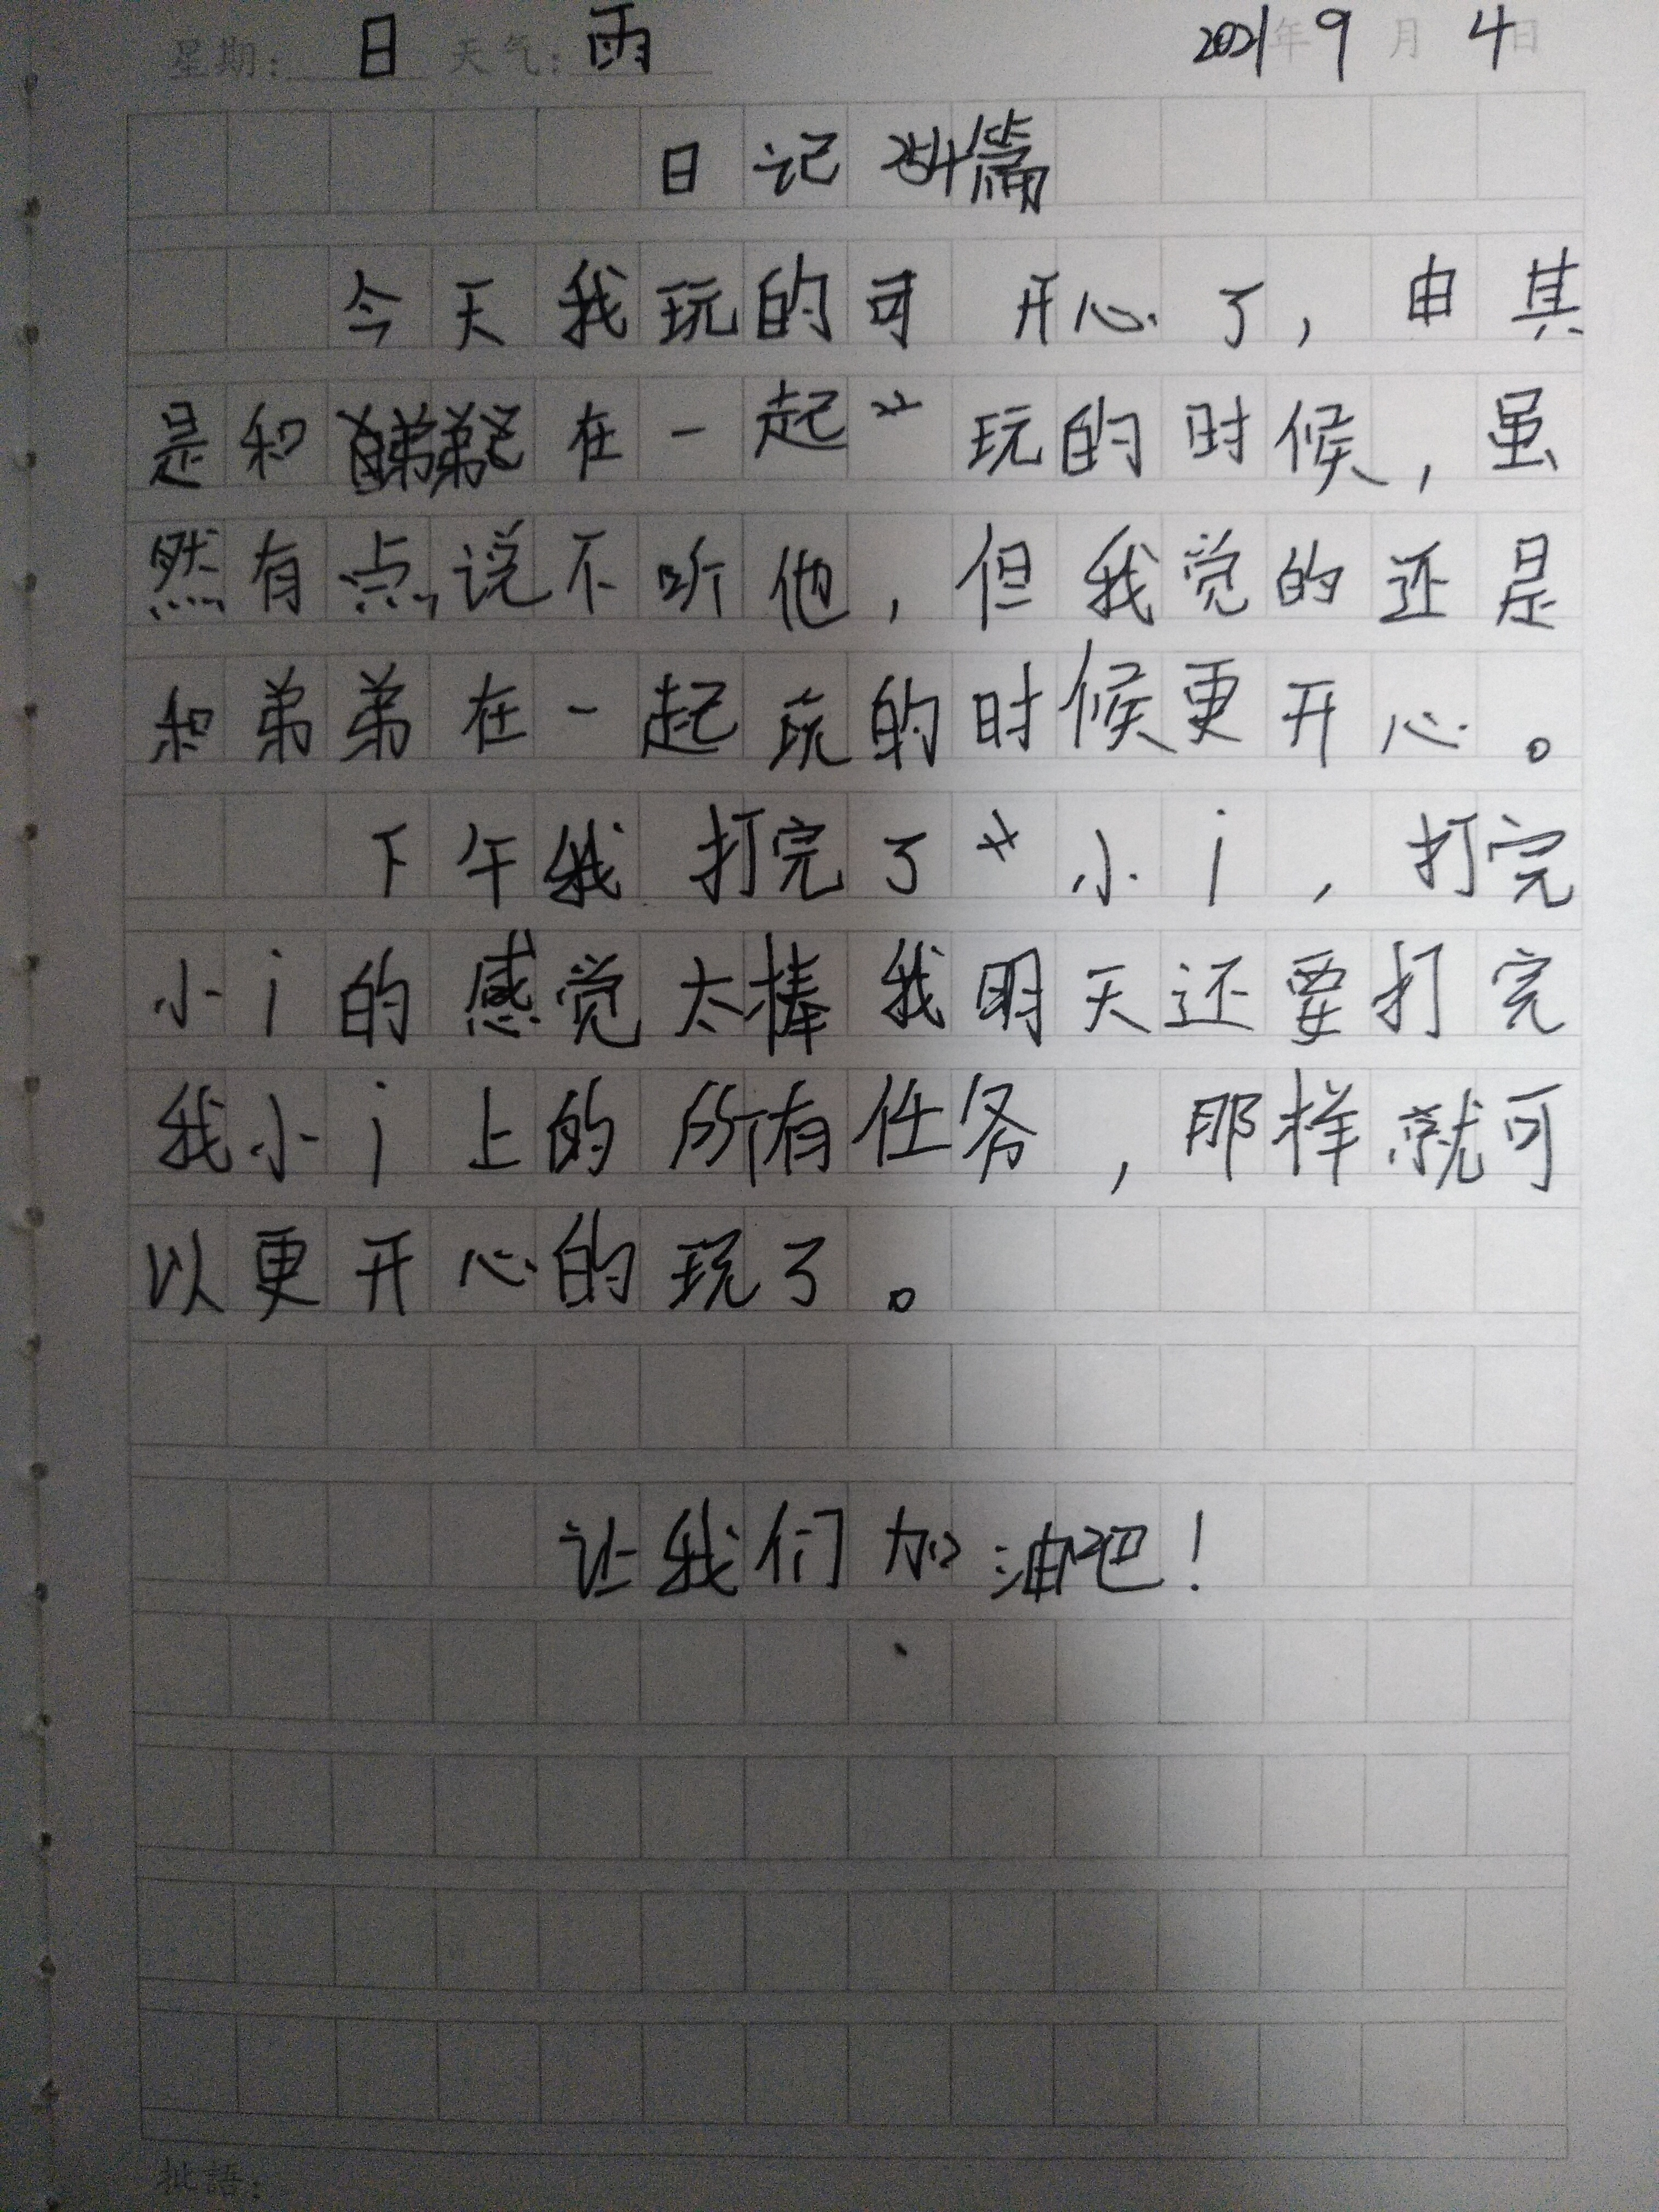 星期：日 天气：雨 2021年9月4日
日记254篇
今天我玩的可开心了，由其
是和弟弟在一起玩的时候，虽
然有点说不听他，但我觉的还是
和弟弟在一起玩的时候更开心。
下午我打完了小i，打完
小i的感觉太棒我明天还要打完
我小i上的所有任务，那样就可
以更开心的玩了。
让我们加油吧！
批語：